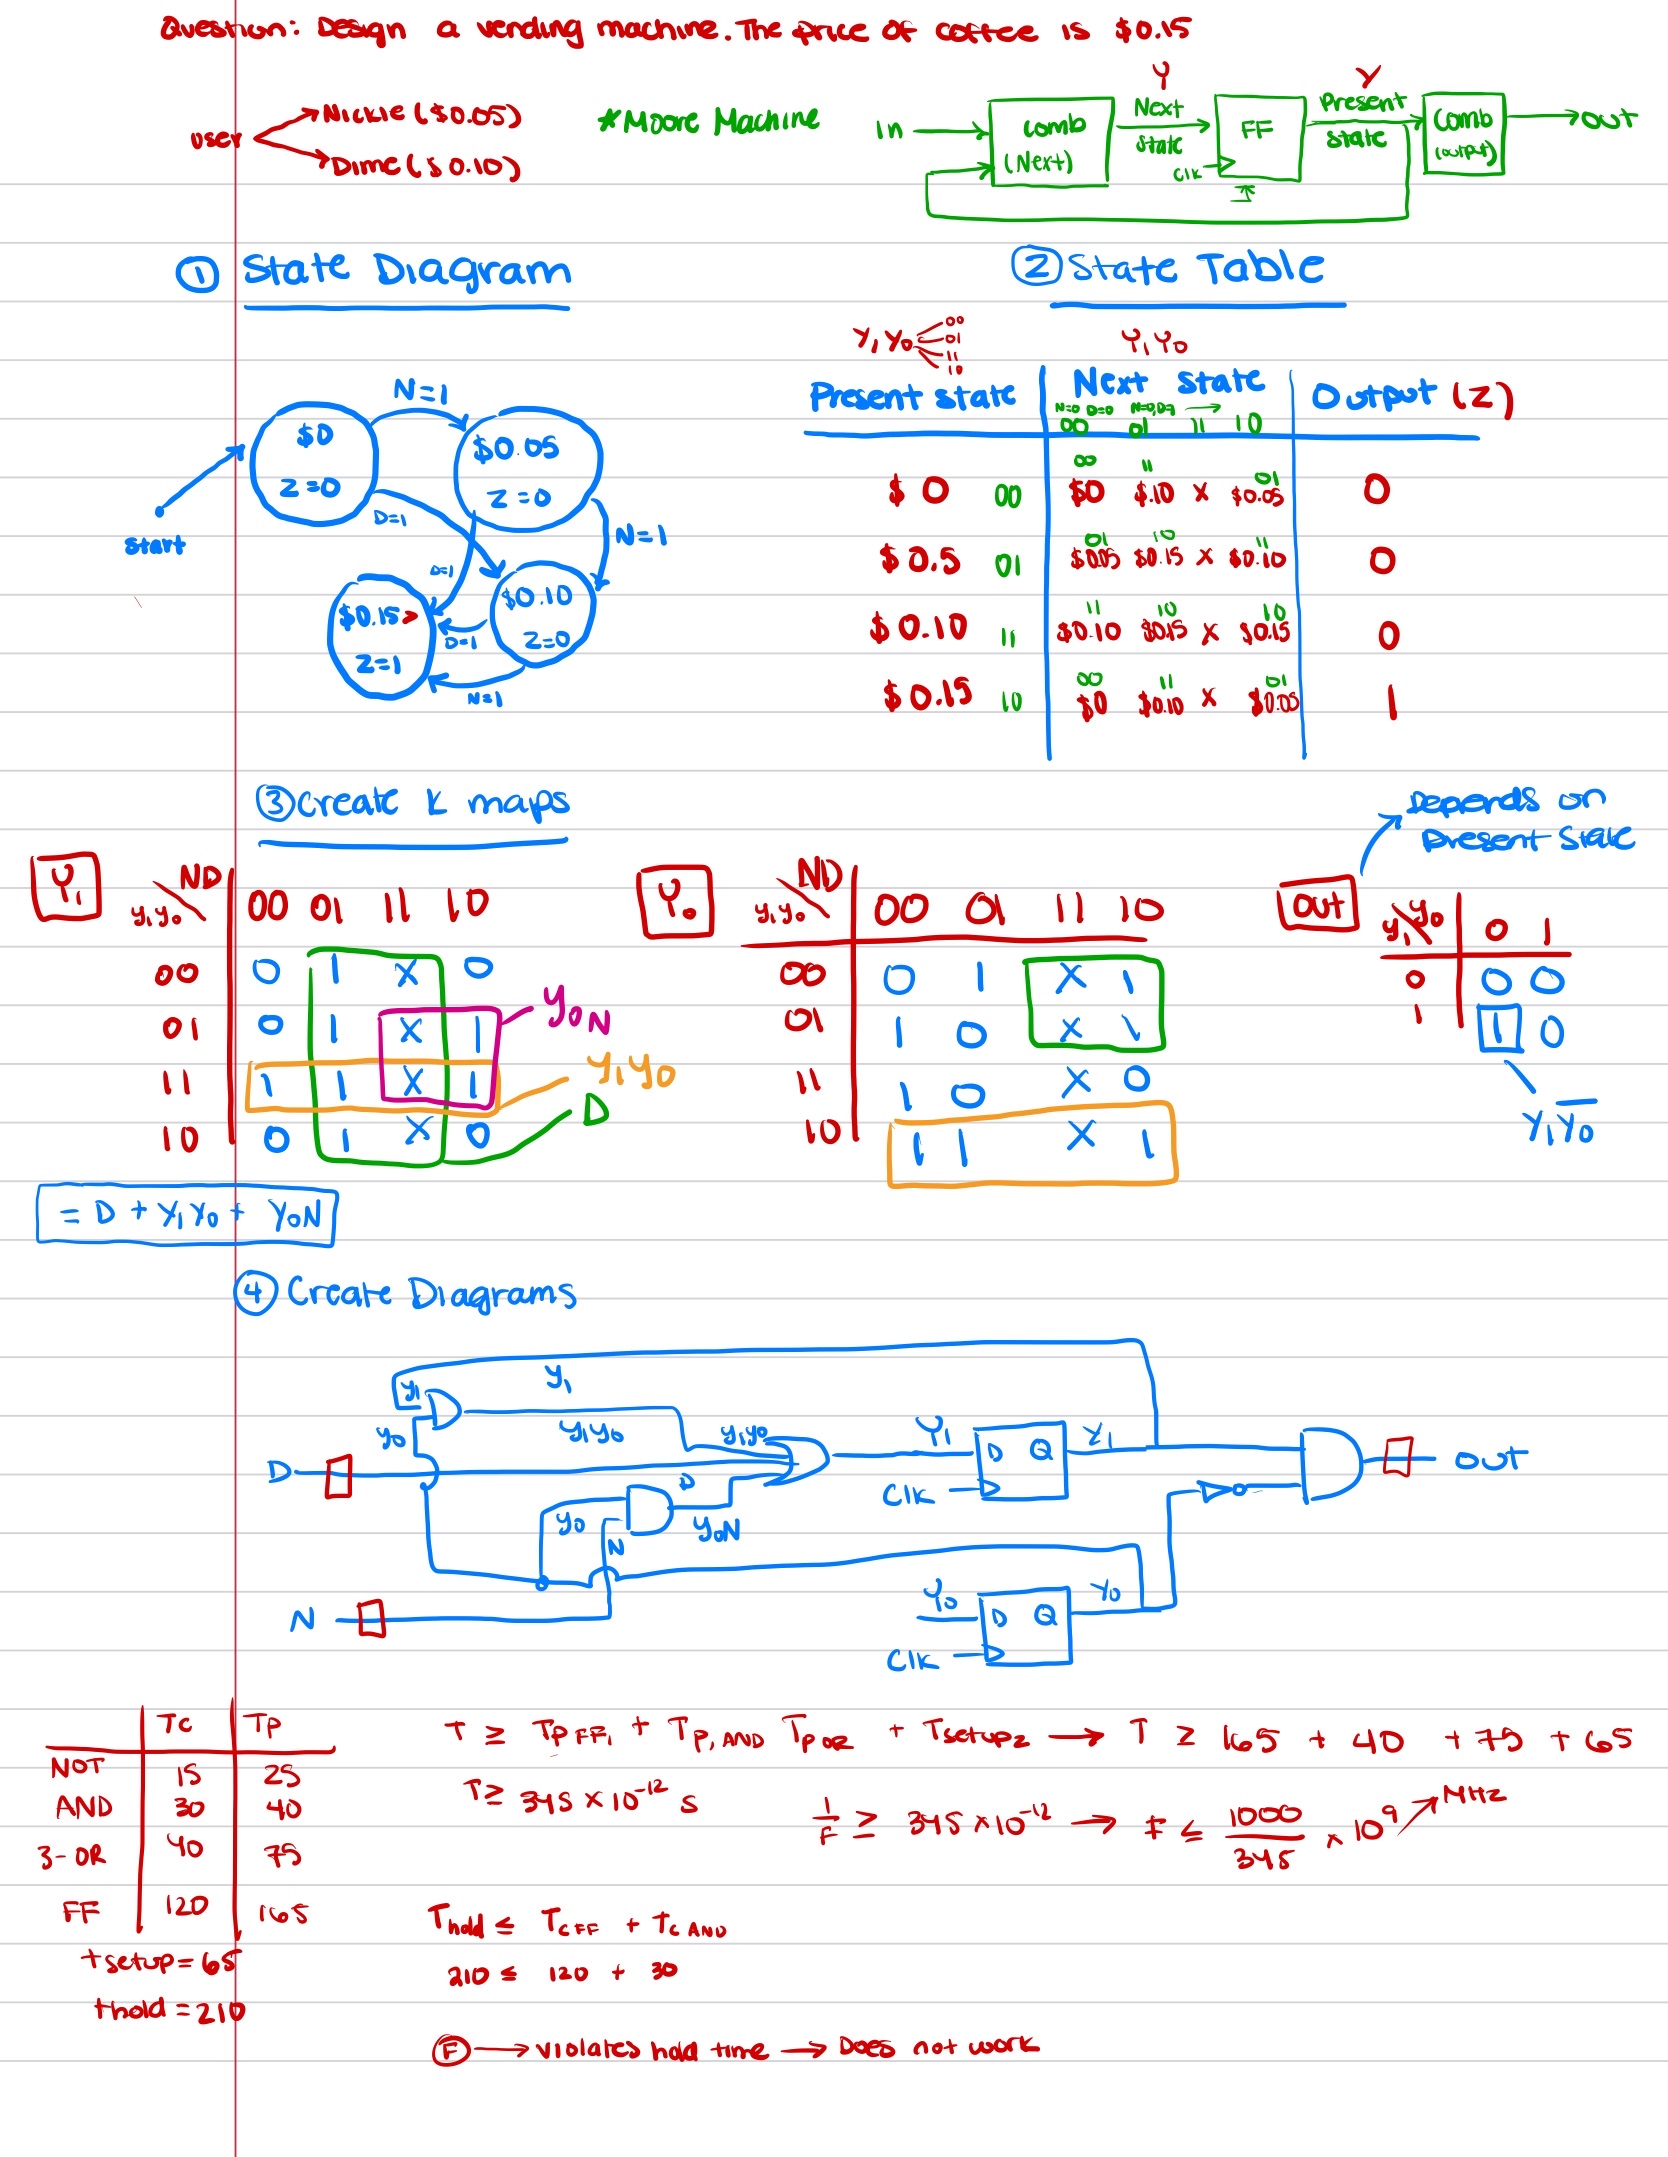 Question: Design a vending machine. The price of coffee is $0.15
user
Nickle ($0.05)
Dime ($0.10)
*Moore Machine
In
Comb (Next)
Y
Next state
Clk
FF
y
Present state
Comb (output)
out
① State Diagram
② State Table
start
$0
Z=0
N=1
$0.05
Z=0
D=1
N=1
D=1
$0.10
Z=0
D=1
N=1
$0.15>
Z=1
y₁y₀ 00 01 11 10
Y₁Y₀
Present state Next state Output (Z)
N=0 D=0 N=0, D=1
00 01 11 10
00 11 01
$0 00 $0 $.10 X $0.05 0
01 10 11
$0.5 01 $0.05 $0.15 X $0.10 0
11 10 10
$0.10 11 $0.10 $0.15 X $0.15 0
00 11 01
$0.15 10 $0 $0.10 X $0.05 1
③ Create K maps
Y₁
ND
y₁y₀ 00 01 11 10
00 0 1 X 0
01 0 1 X 1
11 1 1 X 1
10 0 1 X 0
y₀N
y₁y₀
D
= D + y₁y₀ + y₀N
Y₀
ND
y₁y₀ 00 01 11 10
00 0 1 X 1
01 1 0 X 1
11 1 0 X 0
10 1 1 X 1
Depends on
Present State
out
y₁ y₀ 0 1
0 0 0
1 1 0
y₁y̅₀
④ Create Diagrams
y₁
y₁
y₀
y₁y₀
y₁y₀
D
D
y₀
N
y₀N
N
Y₁
D Q
Clk
y₁
OUT
Y₀
D Q
Clk
y₀
Tc Tp
NOT 15 25
AND 30 40
3-OR 40 75
FF 120 165
tsetup = 65
thold = 210
T ≥ Tp FF₁ + Tp, AND Tp OR + Tsetup₂ → T ≥ 165 + 40 + 75 + 65
T ≥ 345 × 10⁻¹² s
1/F ≥ 345 × 10⁻¹² → F ≤ 1000/345 × 10⁹ MHz
Thold ≤ Tc FF + Tc AND
210 ≤ 120 + 30
Ⓕ → violates hold time → Does not work